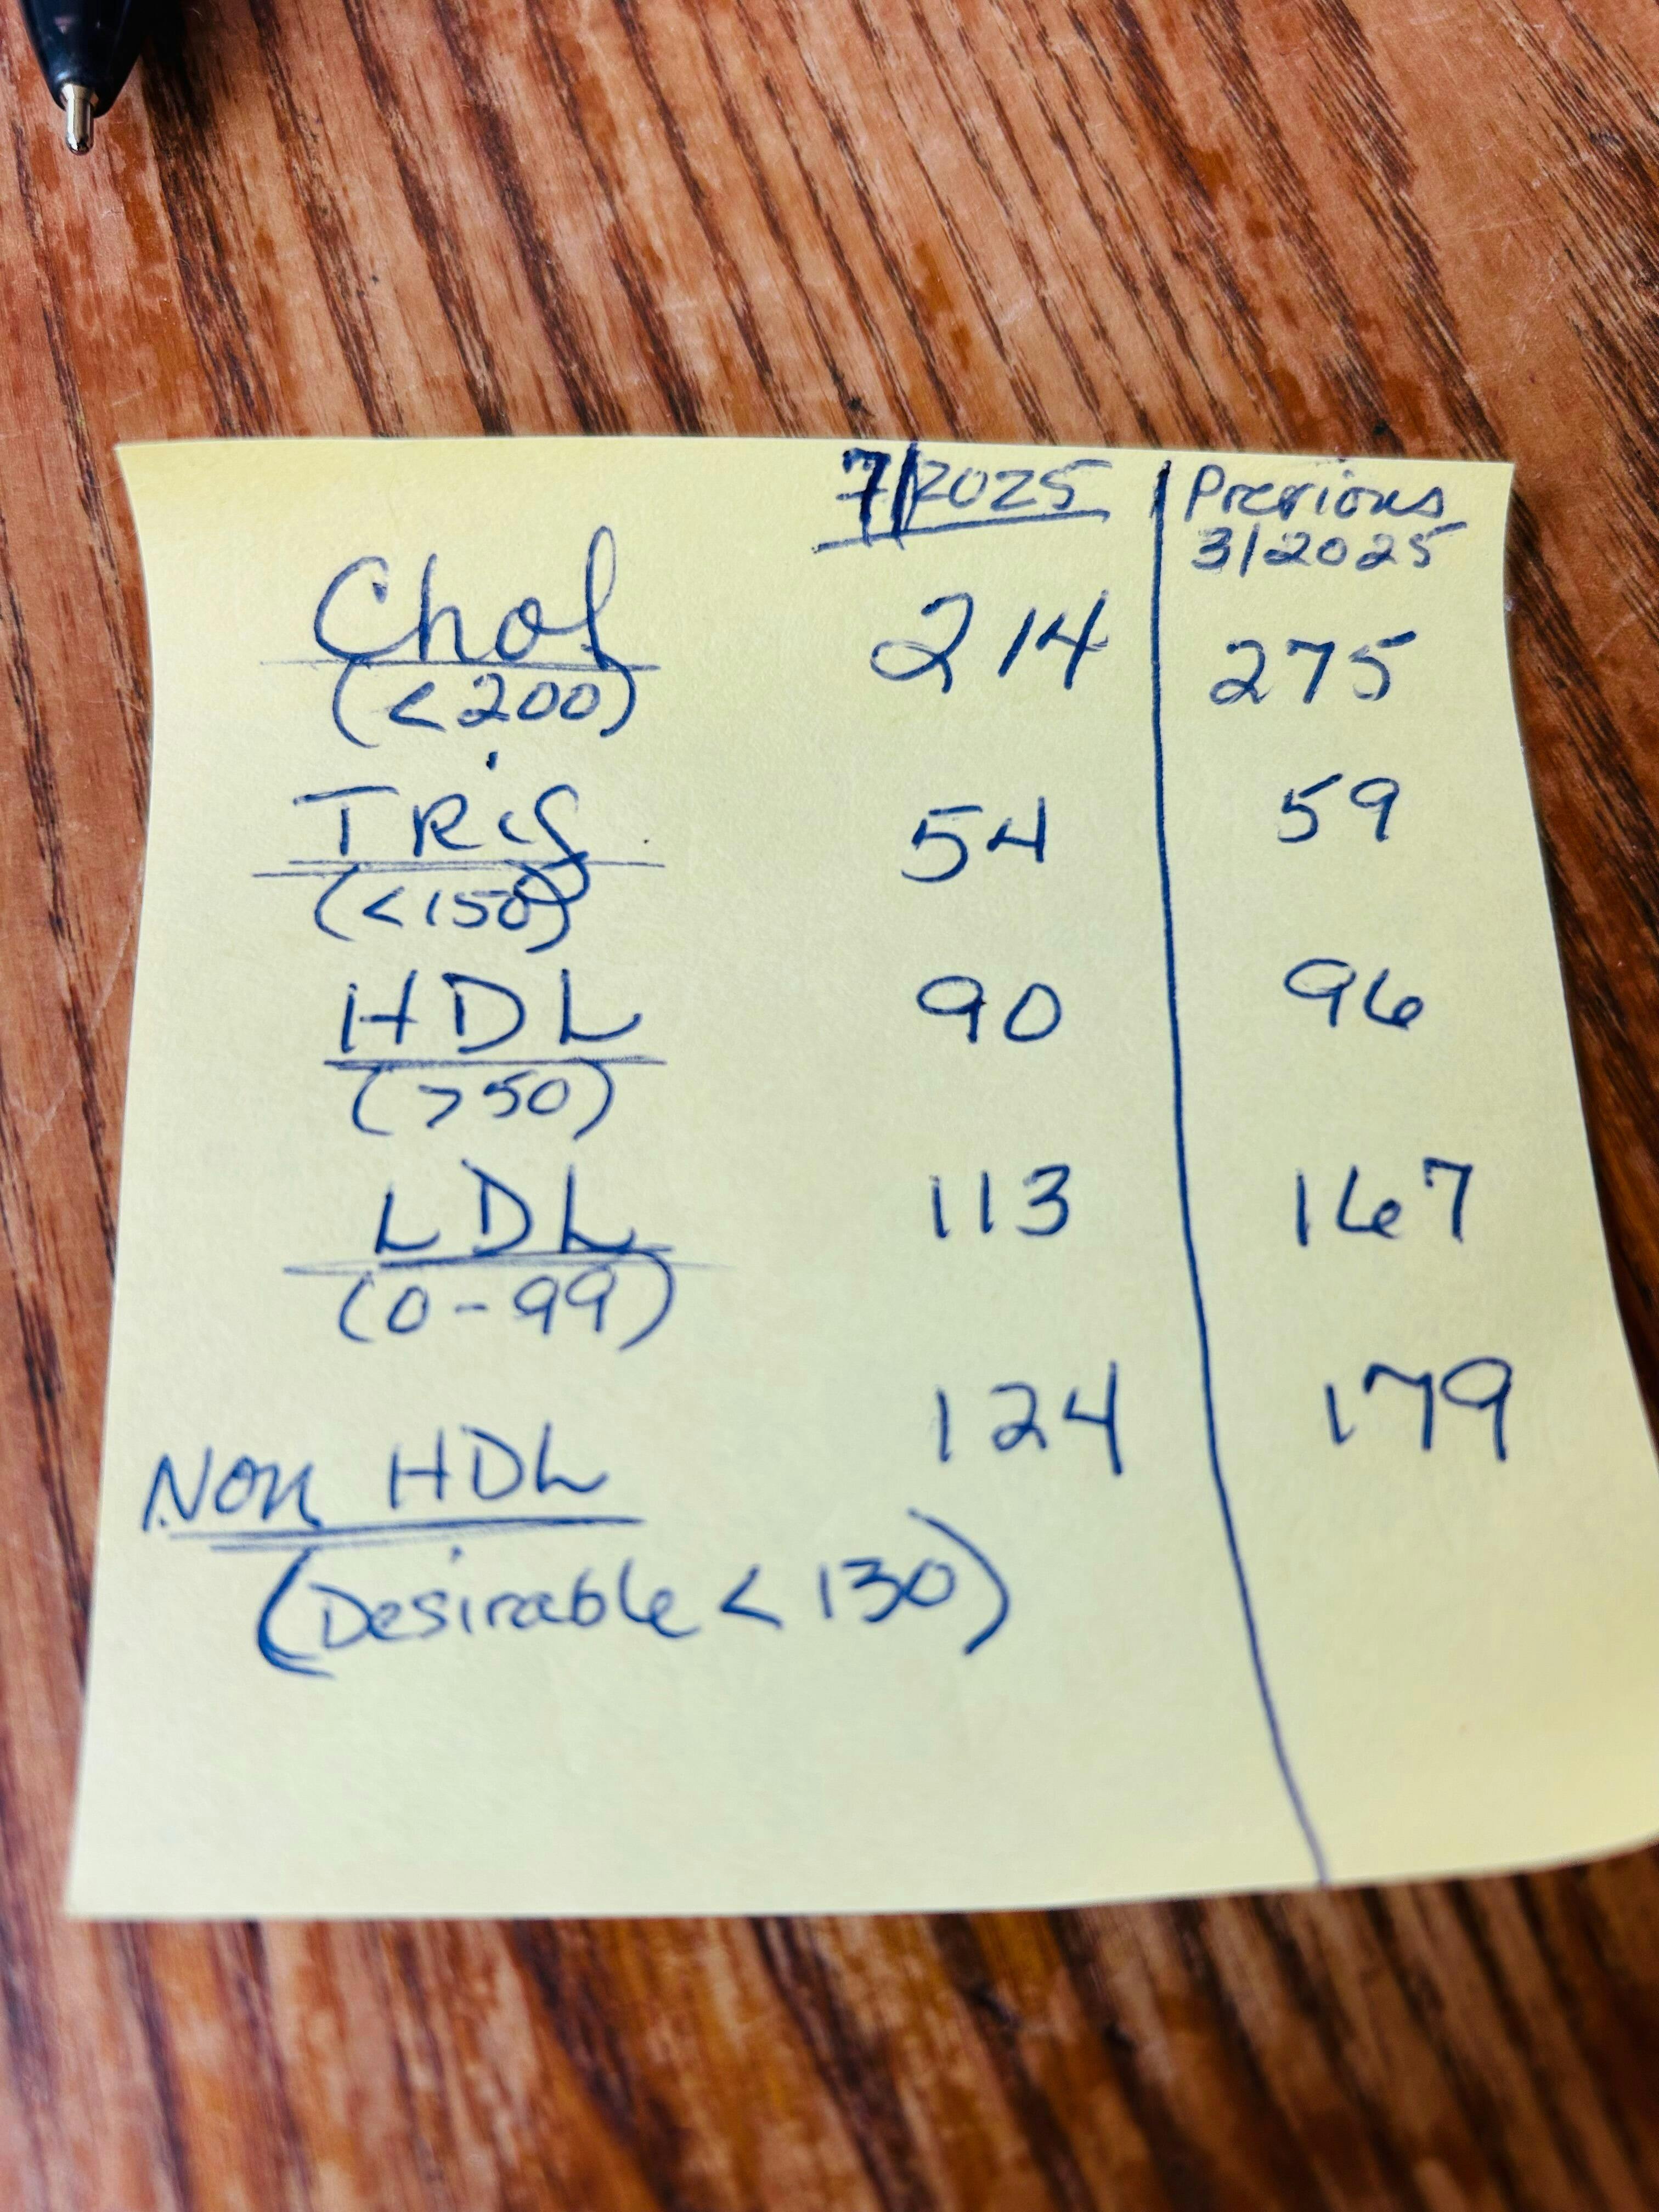 7/2025 | Previous
3/2025
Chol 214 275
(<200)
TRig 54 59
(<150)
HDL 90 96
(>50)
LDL 113 167
(0-99)
Non HDL 124 179
(Desirable < 130)